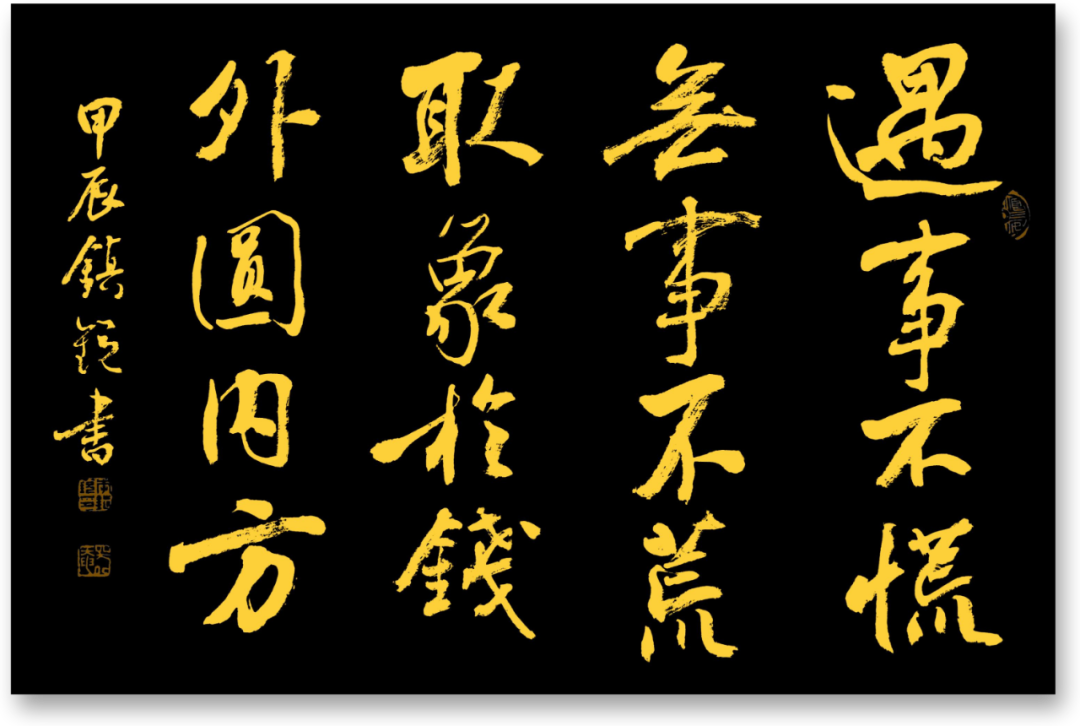 遇事不慌
無事不荒
取象於錢
外圓内方
甲辰鎮鋭書